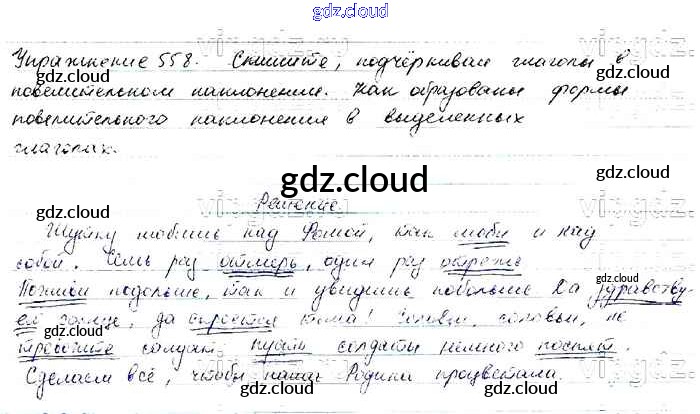 gdz.cloud
gdz.cloud
Упражнение 558. Спишите, подчёркивая глаголы в
повелительном наклонении. Как образованы формы
повелительного наклонения в выделенных
глаголах.
gdz.cloud
gdz.cloud
Решение.
Шутку любишь над Фомой, так люби и над
собой. Семь раз отмерь, один раз отрежь
gdz.cloud
Поживи подольше, так и увидишь побольше Да здравству-
ет солнце, да скроется тьма! Соловьи, соловьи, не
gdz.cloud
тревожьте солдат пусть солдаты немного поспят.
gdz.cloud
Сделаем всё, чтобы наша Родина процветала.
gdz.cloud
gdz.cloud